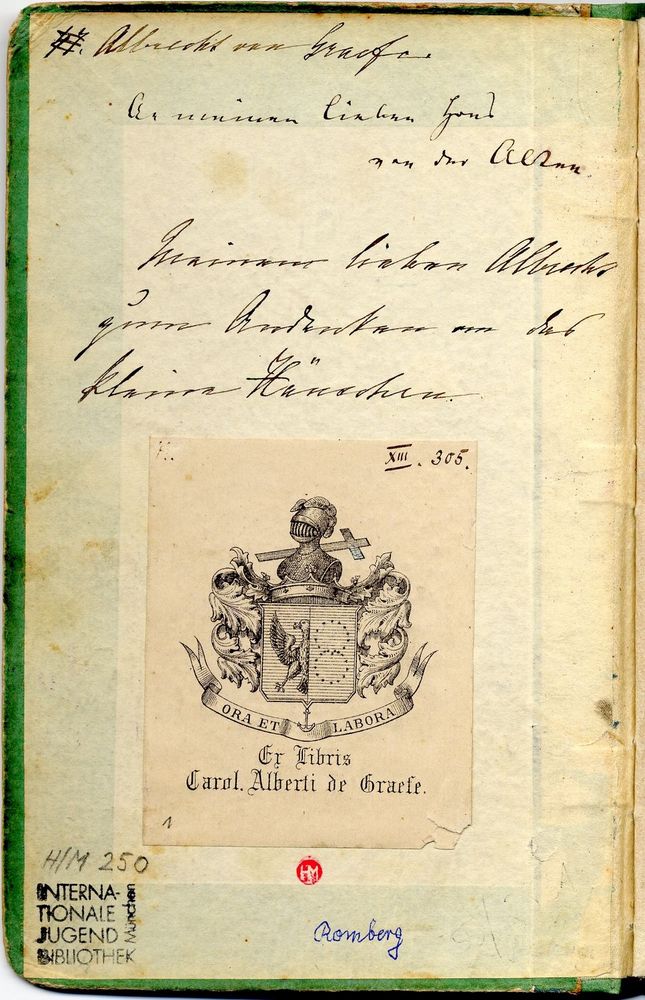 Albrecht von Graefe.
An meinen lieben Hans
von der Alten.
Meinem lieben Albrecht
zum Andenken an das
kleine Hänschen.
XIII. 305.
ORA ET LABORA
Ex Libris
Carol. Alberti de Graefe.
1
H/M 250
INTERNA-
TIONALE
JUGEND
BIBLIOTHEK
München
HM
Romberg